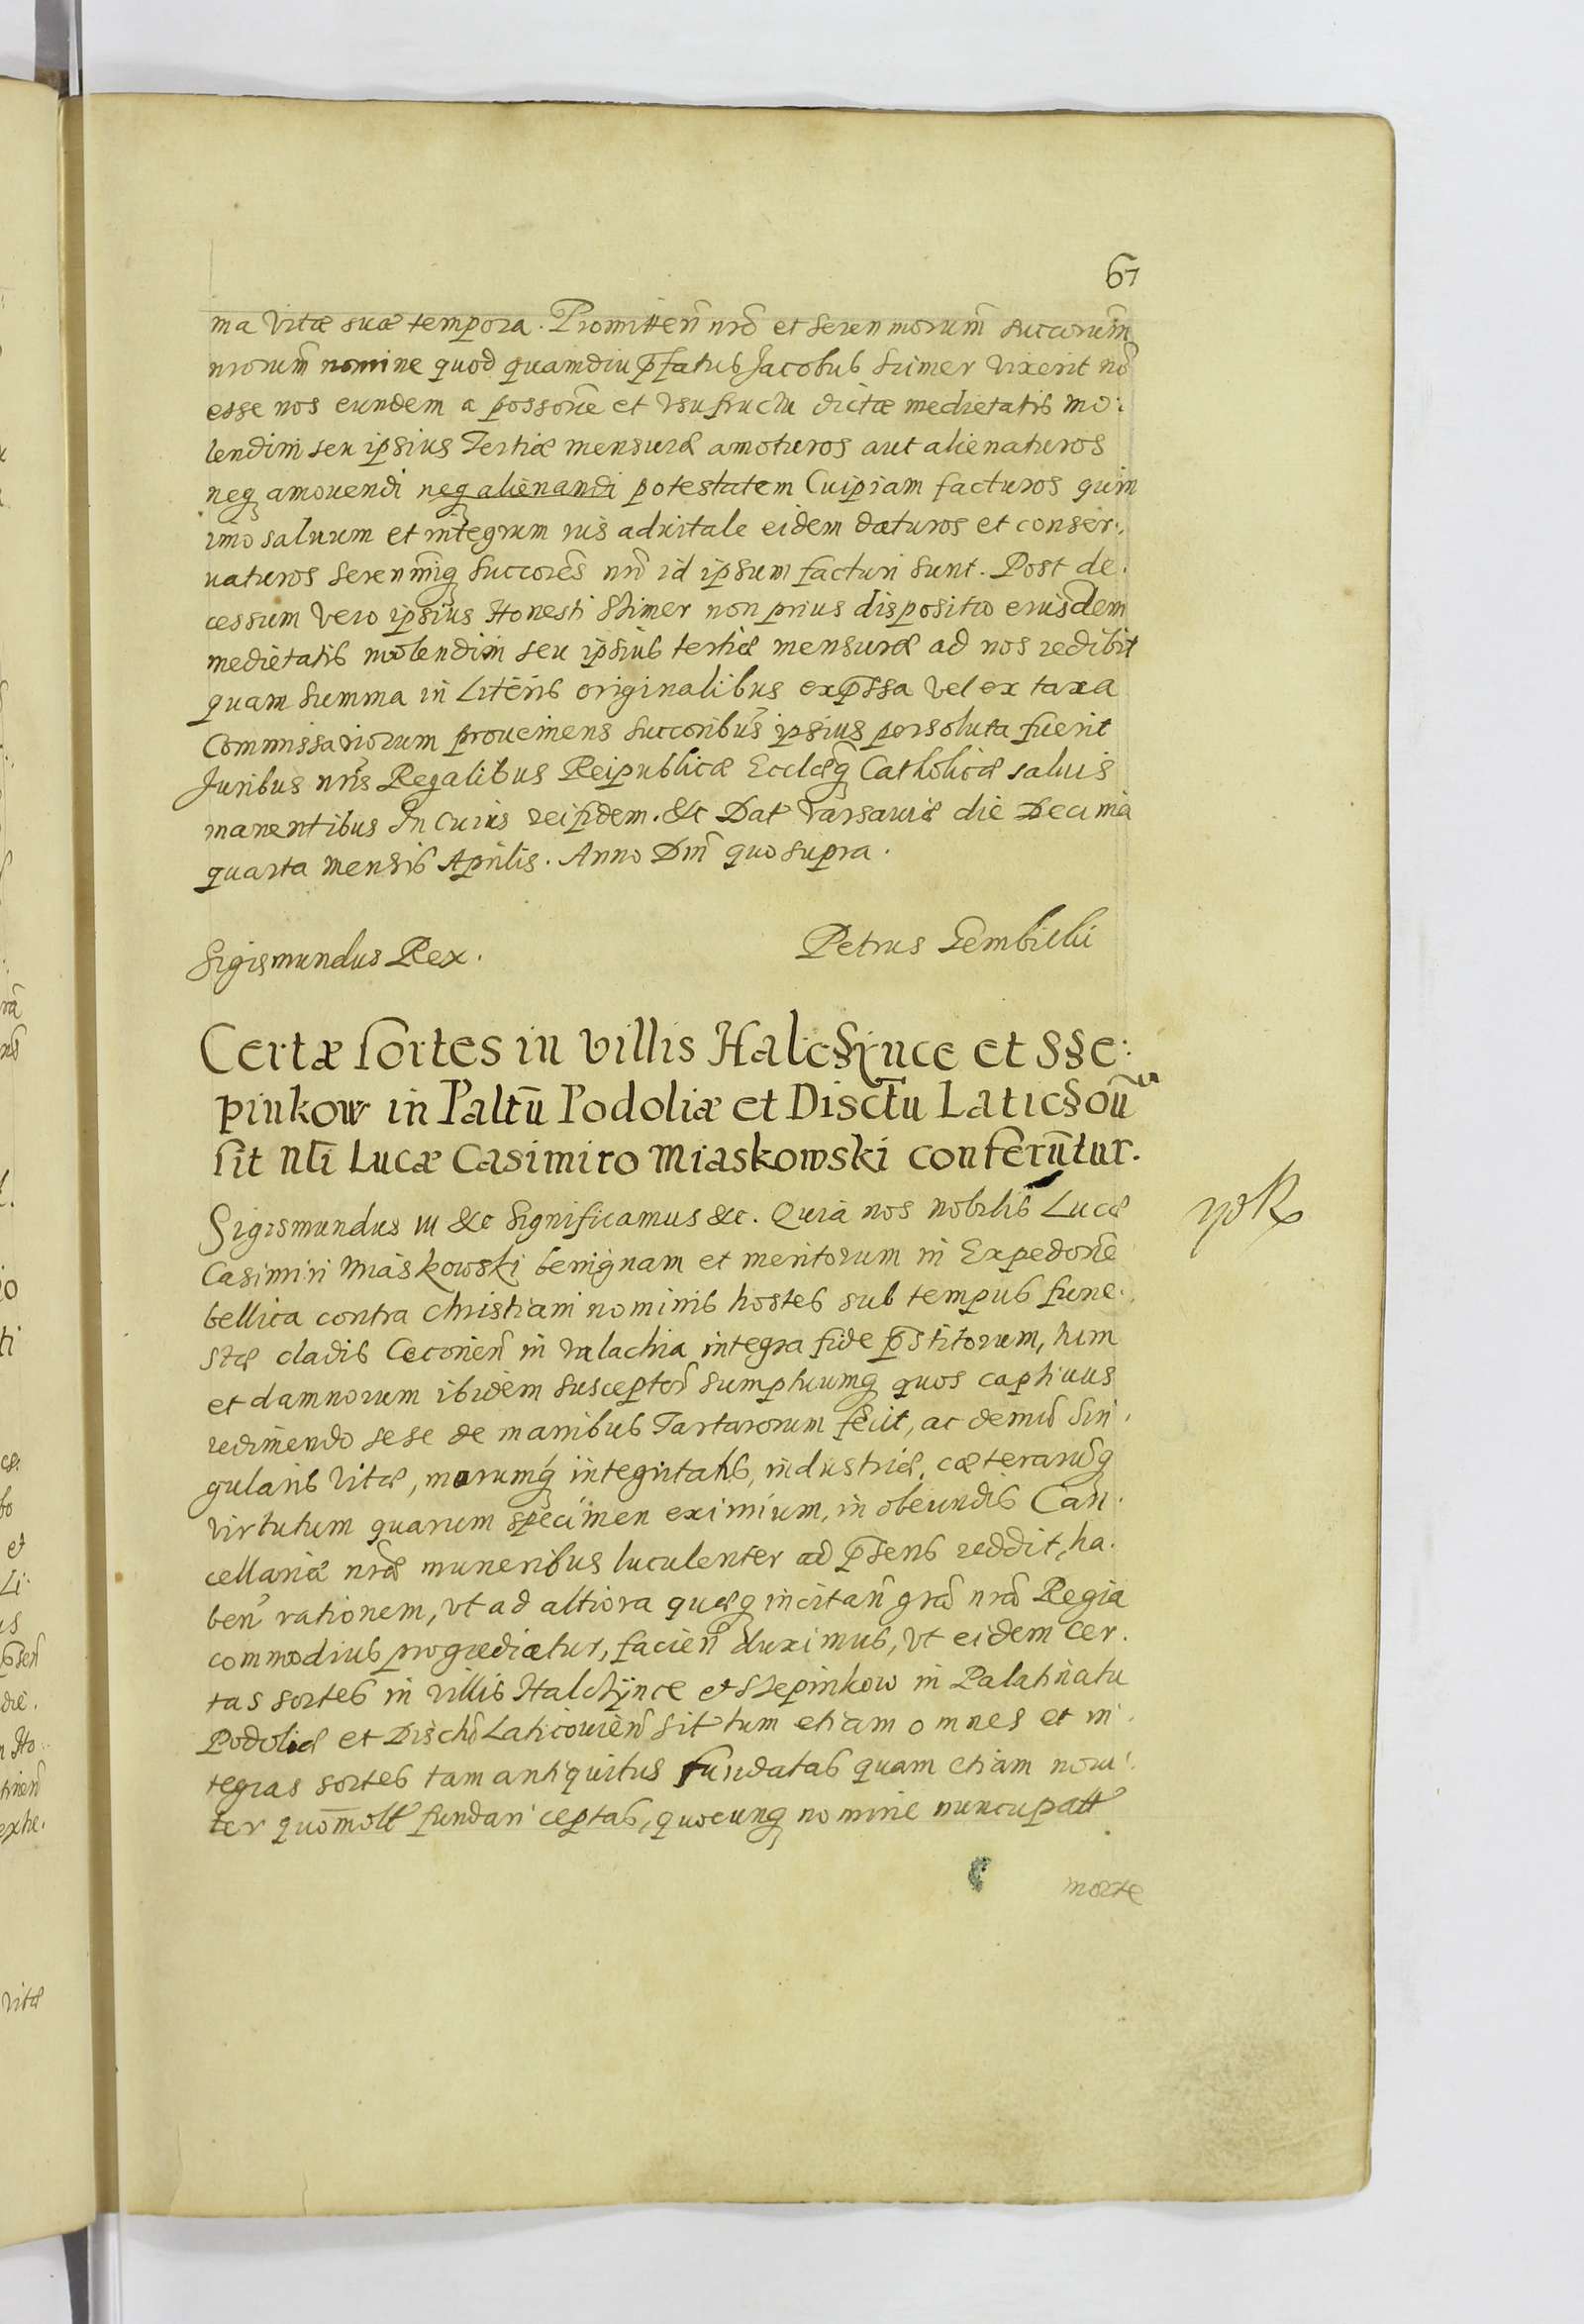 67
ma vitæ suæ tempora. Promitteñ nrõ et serenmorum̃ succorum̃
nrorum̃ nomine quod quamdiu p̃fatus Jacobus Szimer vixerit nõ
esse nos eundem a possonẽ et vsufructu dictæ medietatis mo:
lendini seu ipsius Tertiæ mensuræ amoturos aut alienaturos
neq amouendi neq alienandi potestatem Cuipiam facturos quin
imo saluum et integrum ius aduitale eidem daturos et conser:
uaturos serenmiq̃ succorẽs nrĩ id ipsum facturi sunt. Post de:
cessum vero ipsius Honesti Szimer non prius dispositio eiusdem
medietatis molendini seu ipsius tertiæ mensuræ ad nos redibit
quam summa in Literis originalibus exp̃ssa vel ex taxa
Commissariorum proueniens succoribus̃ ipsius persoluta fuerit
Juribus nrĩs Regalibus Reipublicæ Ecclæq̃ Catholicæ saluis
manentibus In cuius rei fidem. &c Dat Varsauiæ die Decima
quarta mensis Aprilis. Anno Dnĩ quo supra.
Sigismundus Rex.
Petrus Gembicki
Certæ sortes in villis Halczÿnce et Sze:
pinkow in Paltũ Podoliæ et Disctũ Laticzoũ
sit Nlĩ Lucæ Casimiro Miaskowski conferũtur.
Sigismundus III &c Significamus &c. Quia nos nobilis Lucæ
Casimiri Miaskowski benignam et meritorum in Expedonẽ
bellica contra christiani nominis hostes sub tempus fune:
stæ cladis Cecorieñ in Valachia integra fide p̃stitorum, tum
et damnorum ibidem susceptor̃ sumptuumq̃ quos captiuus
redimendo sese de manibus Tartarorum fecit, ac demũ sin:
gularis vitæ, morumq̃ integritatis, industriæ, cæterarũq
virtutum quarum specimen eximium, in obeundis Can:
cellariæ nræ̃ muneribus luculenter ad p̃sens reddit, ha:
ben̄ rationem, vt ad altiora quæq incitañ grã nrã Regia
commodius progrediatur, facieñ duximus, vt eidem cer:
tas sortes in villis Halczÿnce et Szepinkow in Palatinatu
Podoliæ et Disctũ Laticouieñ sit tum etiam omnes et in:
tegras sortes tam antiquitus fundatas quam etiam noui:
ter quomõlt fundari ceptas, quocunq nomine nuncupatt
morte